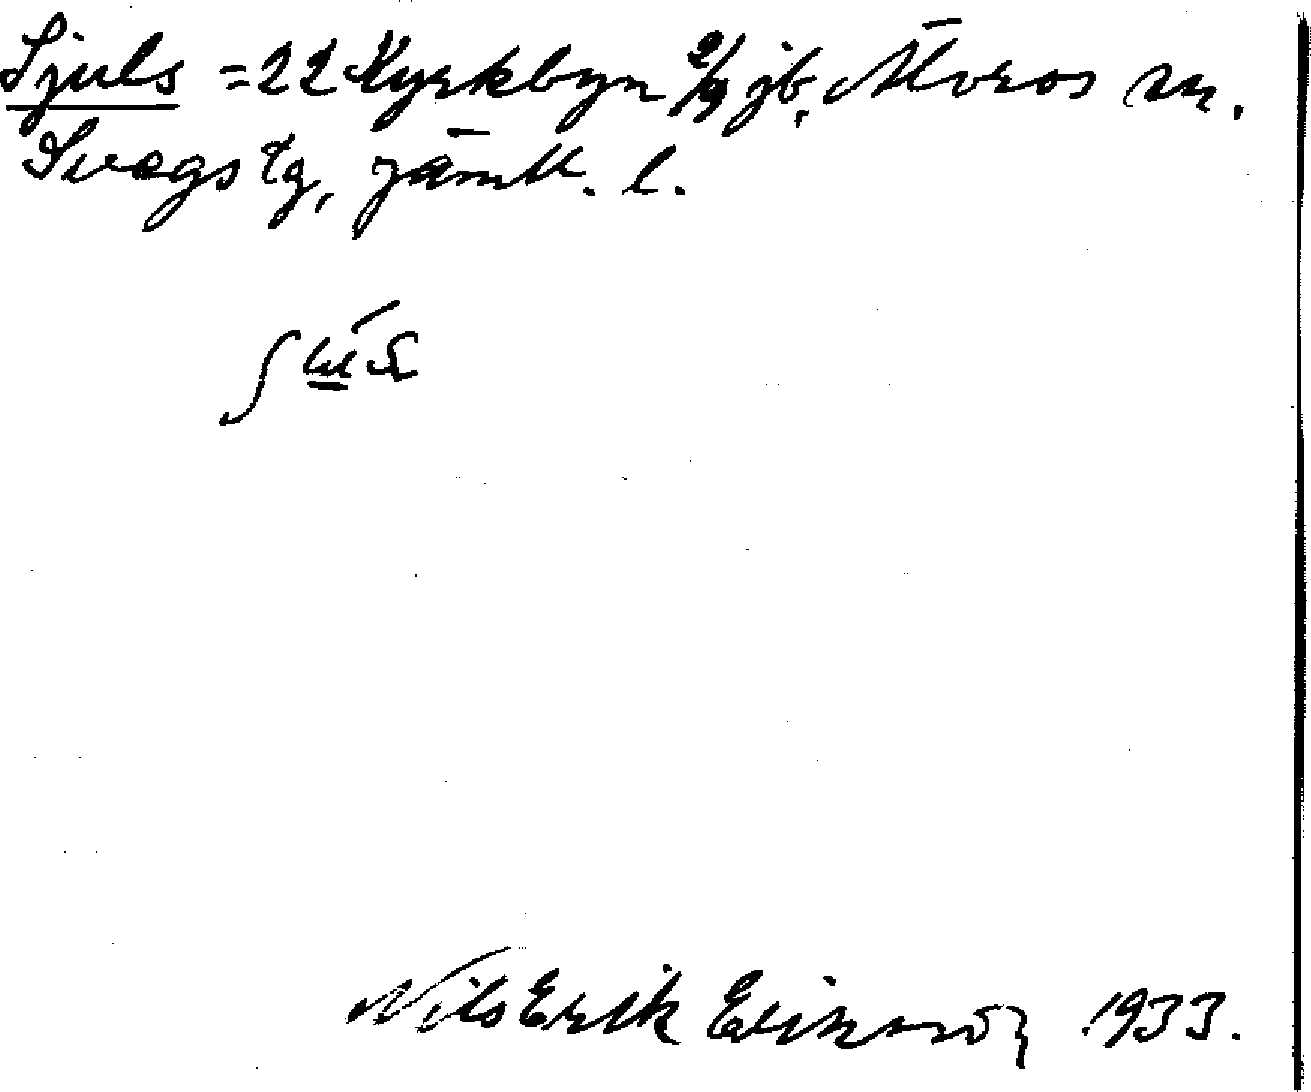 Sjuls = 22 Kyrkbyn 2/9 jb, Älvros sn.
Svegs tg, Jämtl. l.
Nils Erik Eriksson 1933.